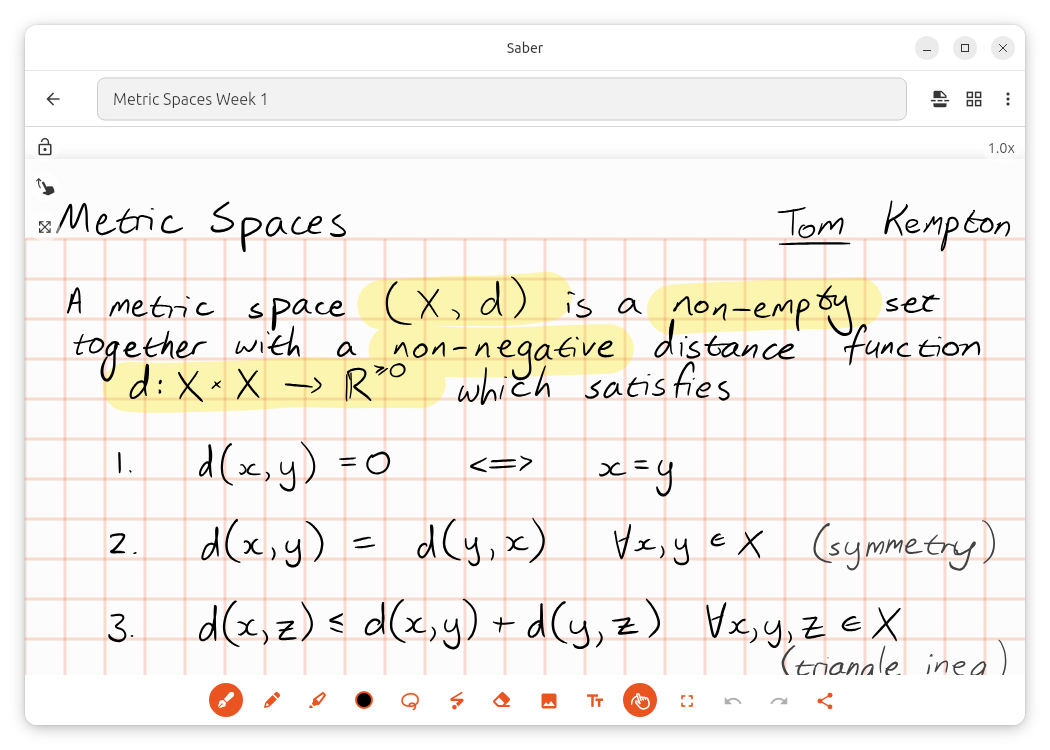 Saber
Metric Spaces Week 1
1.0x
Metric Spaces Tom Kempton
A metric space (X, d) is a non-empty set
together with a non-negative distance function
d: X × X → ℝ^≥0 which satisfies
1. d(x,y) = 0 <=> x = y
2. d(x,y) = d(y,x) ∀x,y ∈ X (symmetry)
3. d(x,z) ≤ d(x,y) + d(y,z) ∀x,y,z ∈ X
(triangle ineq)
Tт